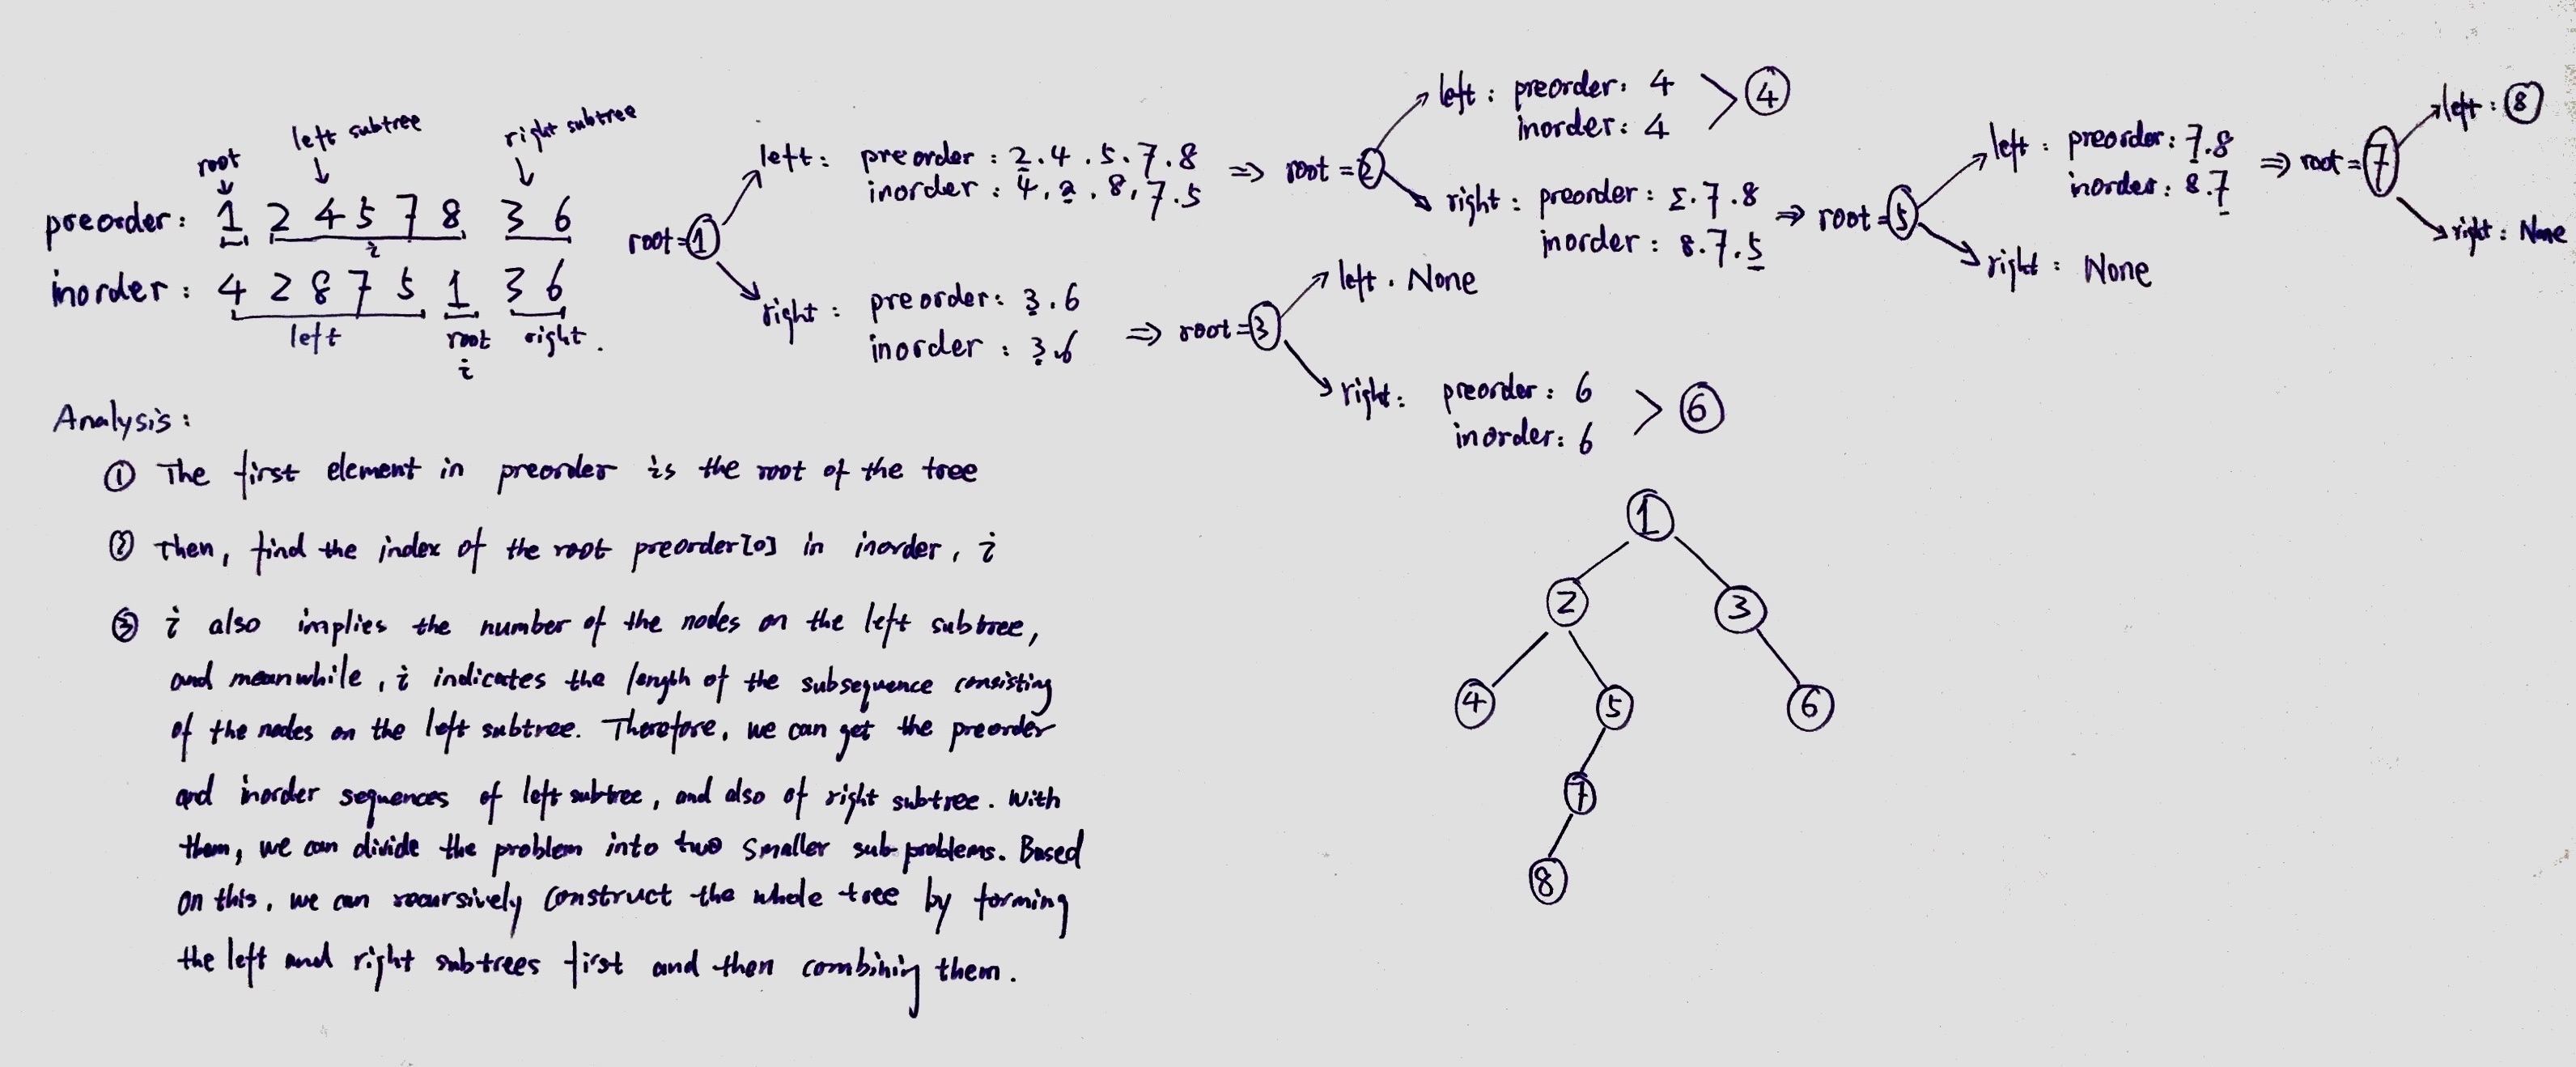 root
left subtree
right subtree
preorder: 1 2 4 5 7 8 3 6
i
inorder: 4 2 8 7 5 1 3 6
left root right.
i
root=1
left: preorder: 2.4.5.7.8
inorder: 4.2.8.7.5
⇒ root=2
left: preorder: 4
inorder: 4
4
right: preorder: 5.7.8
inorder: 8.7.5
⇒ root=5
left: preorder: 7.8
inorder: 8.7
⇒ root=7
left: 8
right: None
right: None
right: preorder: 3.6
inorder: 3.6
⇒ root=3
left. None
right: preorder: 6
inorder: 6
6
Analysis:
① The first element in preorder is the root of the tree
② Then, find the index of the root preorder[0] in inorder, i
③ i also implies the number of the nodes on the left subtree,
and meanwhile, i indicates the length of the subsequence consisting
of the nodes on the left subtree. Therefore, we can get the preorder
and inorder sequences of left subtree, and also of right subtree. With
them, we can divide the problem into two smaller sub-problems. Based
on this, we can recursively construct the whole tree by forming
the left and right subtrees first and then combining them.
1
2 3
4 5 6
7
8